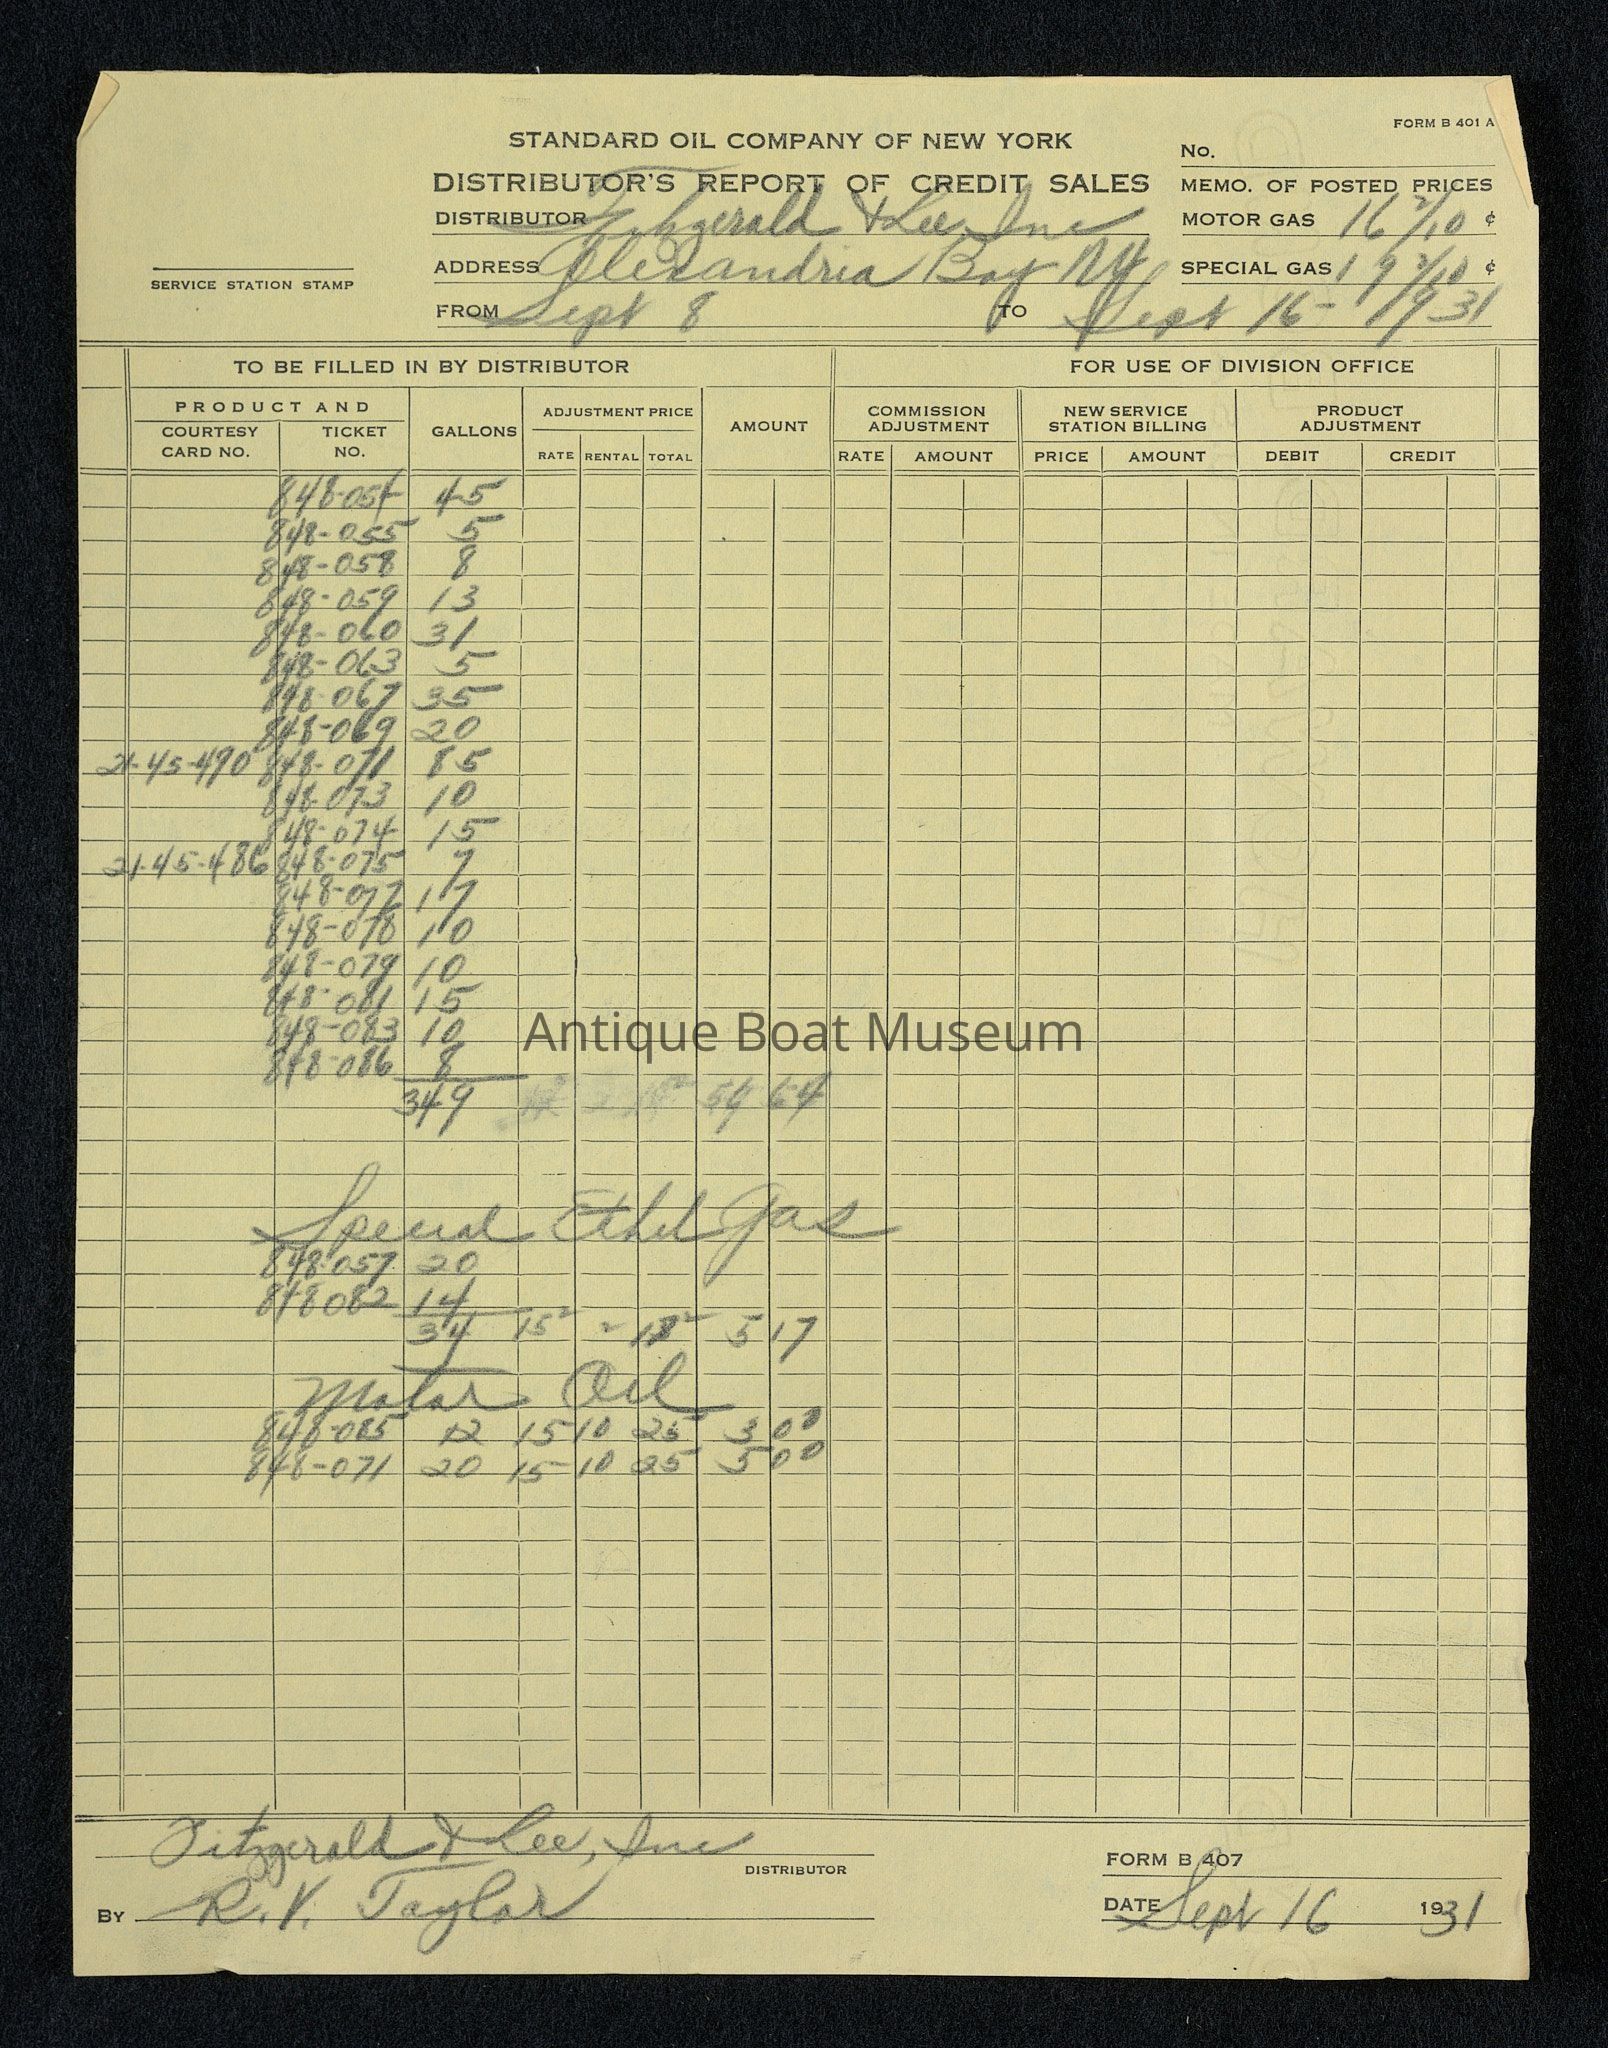 FORM B 401 A
STANDARD OIL COMPANY OF NEW YORK
No.
DISTRIBUTOR'S REPORT OF CREDIT SALES
MEMO. OF POSTED PRICES
DISTRIBUTOR Fitzgerald & Lee, Inc
MOTOR GAS 16 2/10 ¢
ADDRESS Alexandria Bay NY
SPECIAL GAS 19 2/10 ¢
SERVICE STATION STAMP
FROM Sept 8 TO Sept 16 - 1931
TO BE FILLED IN BY DISTRIBUTOR FOR USE OF DIVISION OFFICE
PRODUCT AND GALLONS ADJUSTMENT PRICE AMOUNT COMMISSION ADJUSTMENT NEW SERVICE STATION BILLING PRODUCT ADJUSTMENT
COURTESY CARD NO. TICKET NO. RATE RENTAL TOTAL RATE AMOUNT PRICE AMOUNT DEBIT CREDIT
848-054 45
848-055 5
848-058 8
848-059 13
848-060 31
848-063 5
848-067 35
848-069 20
21-45-490 848-071 85
848-073 10
848-074 15
21-45-486 848-075 7
848-077 17
848-078 10
848-079 10
848-081 15
848-083 10
848-086 8
349 54 64
Antique Boat Museum
Special Ethel Gas
848-057 20
848082 14
34 15² 2 5 17
Motor Oil
848-085 12 15 10 25 3 00
848-071 20 15 10 25 5 00
Fitzgerald & Lee, Inc
DISTRIBUTOR
FORM B 407
BY R.V. Taylor
DATE Sept 16 1931